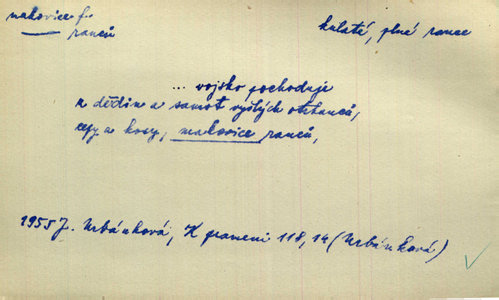 makovice f.
ranců
kulaté, plné rance
... vojsko pochoduje
z dědin a samot vyšlých otrhanců,
cepy a kosy, makovice ranců,
1955 J. Urbánková, K prameni 118, 14 (Urbánková)